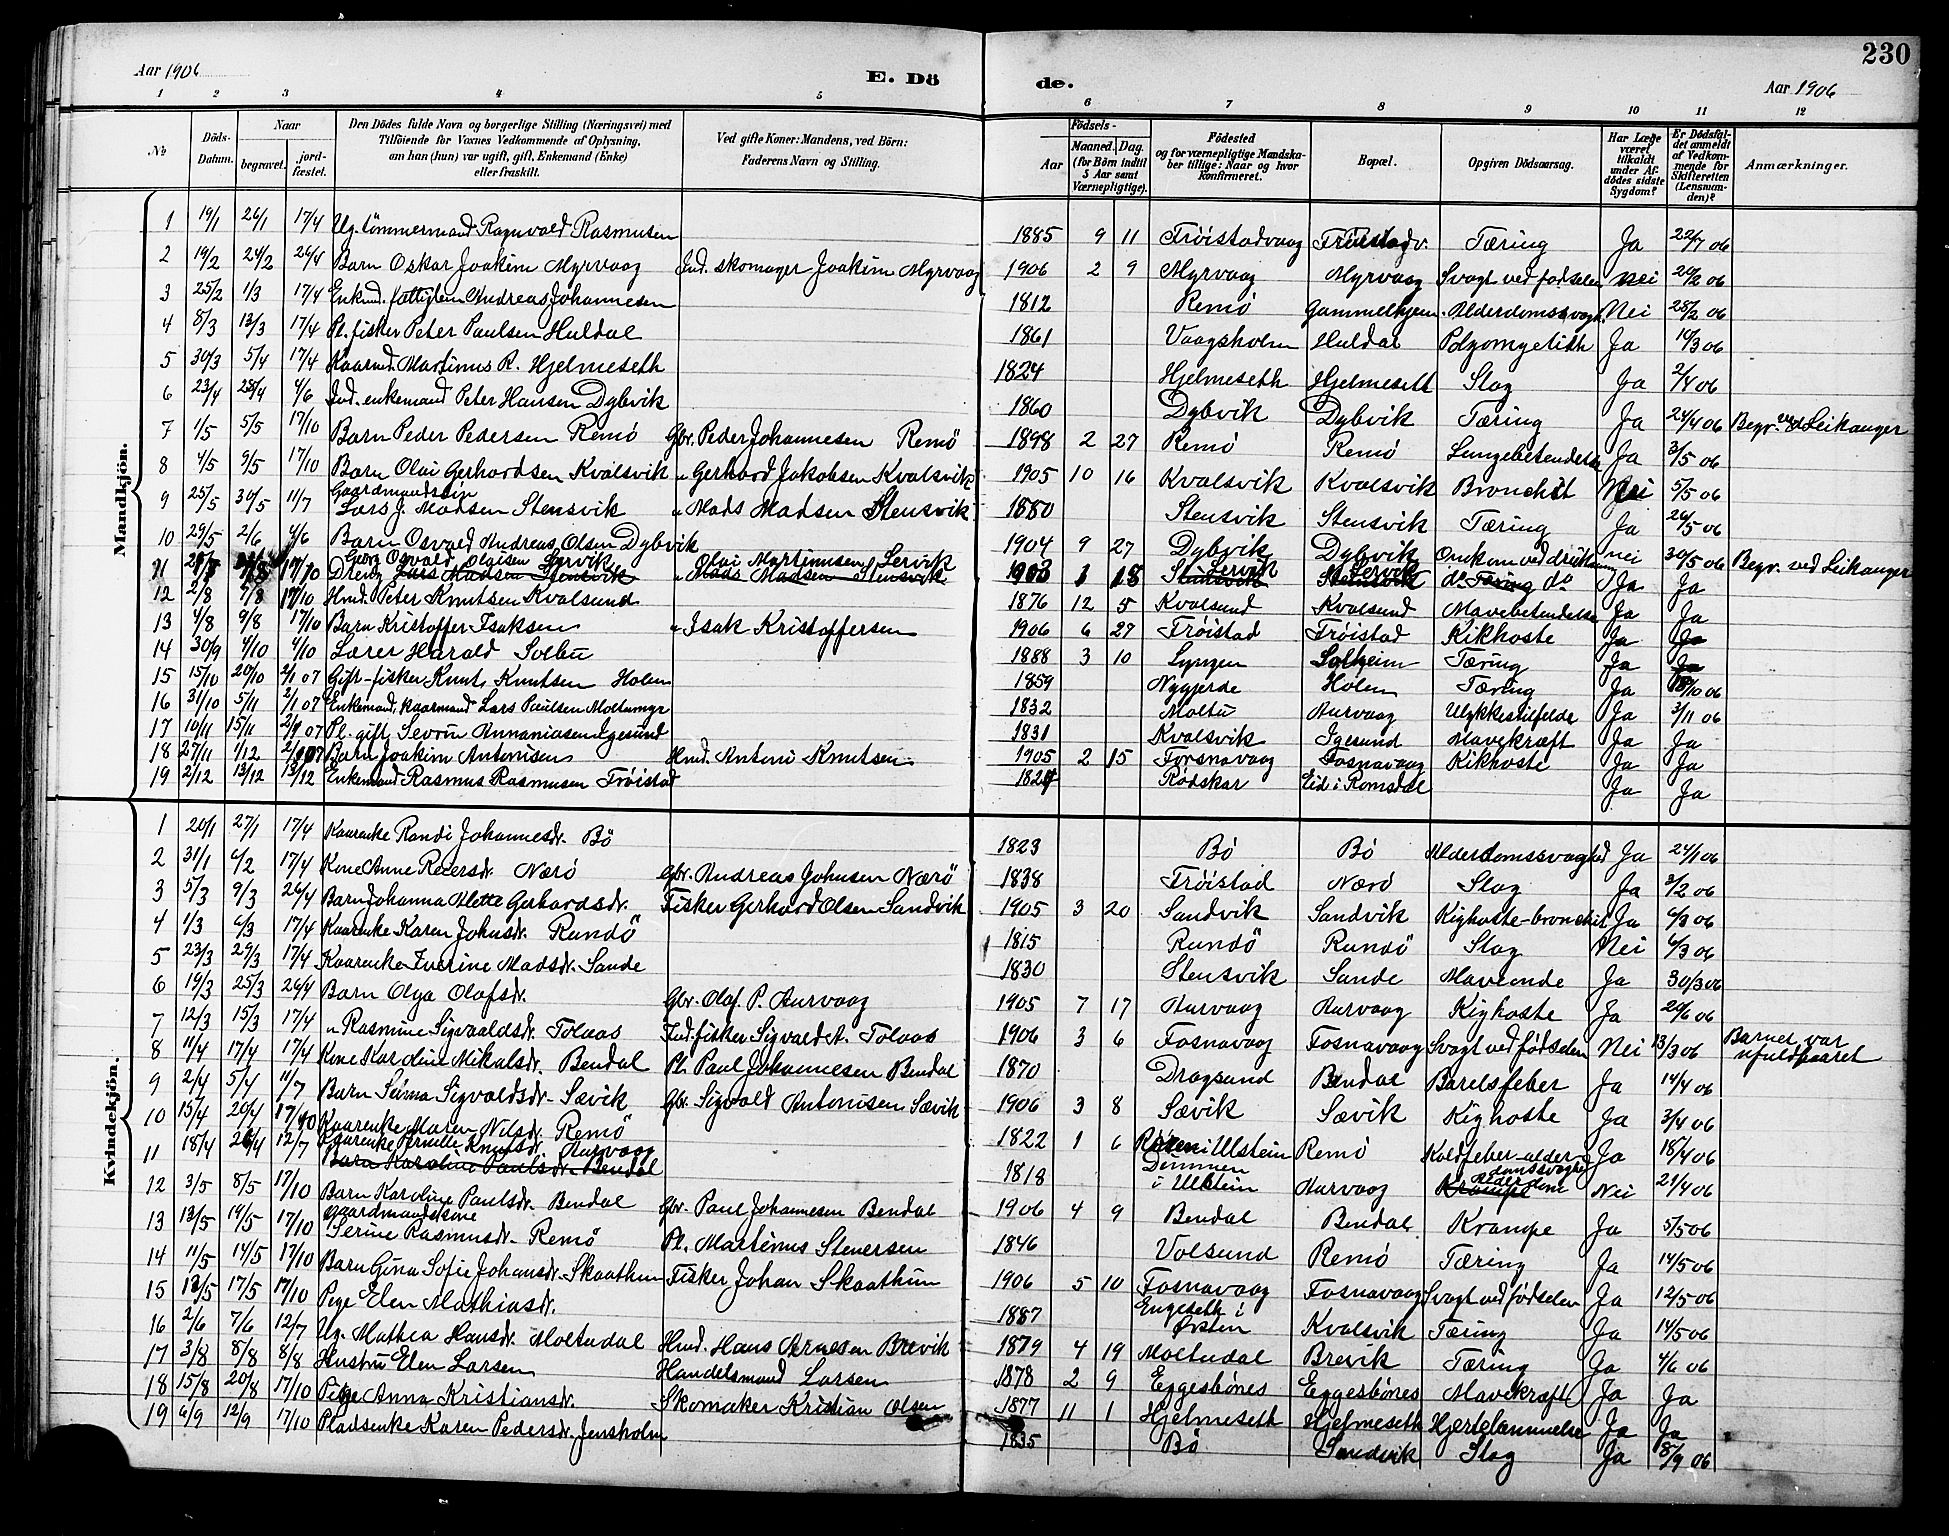 230
Aar 1906 E. Dö de. Aar 1906
1 2 3 4 5 6 7 8 9 10 11 12
No Döds-Datum. Naar begravet. jord-fæstet. Den Dödes fulde Navn og borgerlige Stilling (Næringsvei) med Tilföiende for Voxnes Vedkommende af Oplysning, om han (hun) var ugift, gift, Enkemand (Enke) eller fraskilt. Ved gifte Koner: Mandens, ved Börn: Faderens Navn og Stilling. Födsels- Aar Maaned. Dag. (for Börn indtil 5 Aar samt Værnepligtige). Födested og for værnepligtige Mandska-ber tillige: Naar og hvor Konfirmeret. Bopæl. Opgiven Dödsaarsag. Har Læge været tilkaldt under Af-dödes sidste Sygdom? Er Dödsfal-det anmeldt af Vedkom-mende for Skifteretten (Lensman-den)? Anmærkninger.
Mandkjön.
1 19/1 26/1 17/4 Ug. tömmermand Ragnvald Rasmusen 1885 9 11 Frøistadvaag Frøistadv. Tæring Ja 22/7 06
2 19/2 24/2 26/4 Barn Oskar Joakim Myrvaag Ind. skomager Joakim Myrvaag 1906 2 9 Myrvaag Myrvaag Svagt ved fødselen Nei 20/2 06
3 25/2 1/3 17/4 Enkmd. fattiglem Andreas Johannesen 1812 Remø Gammelhjem Alderdomssvagh. Nei 28/2 06
4 8/3 13/3 17/4 Pl. fisker Peter Paulsen Huldal 1861 Vaagsholm Huldal Polyomyelith Ja 10/3 06
5 30/3 5/4 17/4 Kaarmd. Martinus R. Hjelmeseth 1824 Hjelmeseth Hjelmesett Slag Ja 2/4 06
6 23/4 28/4 4/6 Ind. enkemand Peter Hansen Dybvik 1860 Dybvik Dybvik Tæring Ja 24/4 06 Begr. ved Leikanger
7 1/5 5/5 17/10 Barn Peder Pedersen Remö Gbr. Peder Johannesen Remö 1898 2 27 Remö Remö Lungebetendelse Ja 3/5 06
8 4/5 9/5 17/10 Barn Olai Gerhardsen Kvalsvik " Gerhard Jakobsen Kvalsvik 1905 10 16 Kvalsvik Kvalsvik Bronchit Nei 5/5 06
9 25/5 30/5 11/7 Gaardmandssøn Lars J. Madsen Stensvik " Mads Madsen Stensvik 1880 Stensvik Stensvik Tæring Ja 26/5 06
10 29/5 2/6 4/6 Barn Osvald Andreas Olsen Dybvik 1904 9 27 Dybvik Dybvik Omkom ved drukning nei 30/5 06 Begr. ved Leikanger
11 17/10 Georg Osvald Olaisen Lervik Dreng Lars Madsen Stensvik Olai Martinusen Lervik " Mads Madsen Stensvik 1903 1 18 Lervik Stensvik Lervik Stensvik do Tæring do Ja Ja
12 2/8 7/8 17/10 Hmd. Peter Knutsen Kvalsund 1876 12 5 Kvalsund Kvalsund Mavebetendelse Ja Ja
13 4/8 9/8 17/10 Barn Kristoffer Isaksen " Isak Kristoffersen 1906 6 27 Frøistad Frøistad Kikhoste Ja Ja
14 30/9 4/10 4/10 Lærer Harald Solbu 1888 3 10 Lyngen Solheim Tæring Ja Ja
15 15/10 20/10 2/1 07 Gift-fisker Knut Knutsen Holen 1859 Nygjerde Holen Tæring Ja 18/10 06
16 31/10 5/11 2/1 07 Enkemand, kaarmand Lars Paulsen Moltumyr 1832 Moltu Aurvaag Ulykkestilfelde Ja 3/11 06
17 10/11 15/11 2/1 07 Pl. gift Sevrin Annaniasen Igesund 1831 Kvalsvik Igesund Mavekræft Ja Ja
18 27/11 1/12 2/1 07 Barn Joakim Antonisen Hmd. Antoni Knutsen 1905 2 15 Forsnavaag Fosnavaag Kikhoste Ja Ja
19 2/12 13/12 13/12 Enkemand Rasmus Rasmusen Frøistad 1824 Rødskar Eid i Romsdal Ja Ja
Kvindekjön.
1 20/1 27/1 17/4 Kaarenke Randi Johannesdr. Bö 1823 Bö Bö Alderdomssvaghed Ja 24/1 06
2 31/1 6/2 17/4 Kone Anne Reiersdr. Nærö Gbr. Andreas Johnsen Nærö 1838 Frøistad Nærö Slag Ja 3/2 06
3 5/3 9/3 26/4 Barn Johanna Alette Gerhardsdr. Fisker Gerhard Olsen Sandvik 1905 3 20 Sandvik Sandvik Kighoste-bronchit Ja 6/3 06
4 1/3 6/3 17/4 Kaarenke Karen Johnsdr. Rundö 1815 Rundö Rundö Slag Nei 6/3 06
5 23/3 29/3 17/4 Kaarenke Iverine Madsdr. Sande 1830 Stensvik Sande Maveonde Ja 30/3 06
6 19/3 25/3 26/4 Barn Olga Olafsdr. Gbr. Olaf P. Aurvaag 1905 7 17 Aurvaag Aurvaag Kighoste Ja 20/6 06
7 12/3 15/3 17/4 " Rasmine Sigvaldsdr. Tolaas Ind. fisker Sigvald A. Tolaas 1906 3 6 Fosnavaag Fosnavaag Svagt ved fødselen Nei 13/3 06 Barnet var ufuldbaaret
8 11/4 17/4 17/4 Kone Karoline Mikalsdr. Bendal Pl. Paul Johannesen Bendal 1870 Dragsund Bendal Barelsfeber Ja 14/4 06
9 2/4 5/4 11/7 Barn Selma Sigvaldsdr. Sævik Gbr. Sigvald Antonisen Sævik 1906 3 8 Sævik Sævik Kighoste Ja 3/4 06
10 15/4 20/4 17/10 Kaarenke Maren Nilsdr. Remö 1822 1 6 i Ulstein Remö Koldfeber-alderdomssvaghed Ja 18/4 06
11 18/4 26/4 12/7 Kaarenke Pernille Knutsdr. Aurvaag Barn Karoline Paulsdr. Bendal 1818 Dimmen i Ulstein Aurvaag Alderdom Krampe Nei 21/4 06
12 3/5 8/5 17/10 Barn Karoline Paulsdr. Bendal Gbr. Paul Johannesen Bendal 1906 4 9 Bendal Bendal Krampe Ja 5/5 06
13 13/5 19/5 17/10 Gaardmandskone Serine Rasmusdr. Remö Pl. Martinus Steversen 1846 Volsund Remö Tæring Ja 14/5 06
14 11/5 14/5 17/10 Barn Gina Sofie Johansdr. Skaathun Fisker Johan Skaathun 1906 5 10 Fosnavaag Fosnavaag Svagt ved fødselen Ja 12/5 06
15 13/5 17/5 17/10 Pige Elen Mathiasdr. 1887 Engeseth i Ørsten Kvalsvik Tæring Ja 14/5 06
16 2/6 7/6 12/7 Ug. Mathea Hansdr. Moltudal Hmd. Hans Arnesen Brevik 1879 4 19 Moltudal Brevik Tæring Ja 4/6 06
17 3/8 8/8 8/8 Hustru Elen Larsen Handelsmand Larsen 1878 2 9 Eggesbönes Eggesbönes Mavekræft Ja Ja
18 15/8 20/8 17/10 Pige Anna Kristiansdr. Skomaker Kristian Olsen 1877 11 1 Hjelmeseth Hjelmeseth Hjertelammelse Ja Ja
19 6/9 12/9 17/10 Pladsenke Karen Pedersdr. Jensholm 1835 Bö Sandvik Slag Ja 8/9 06